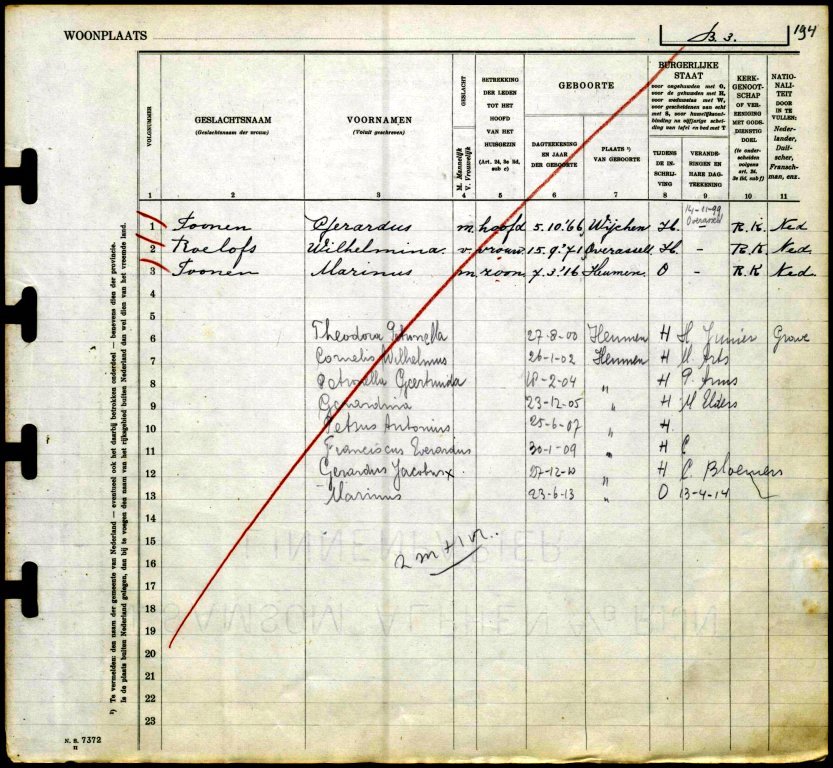 WOONPLAATS
B. 3.
194
VOLGNUMMER
GESLACHTSNAAM
(Geslachtsnaam der vrouw)
VOORNAMEN
(Voluit geschreven)
GESLACHT
M. Mannelijk
V. Vrouwelijk
BETREKKING
DER LEDEN
TOT HET
HOOFD
VAN HET
HUISGEZIN
(Art. 24, 3e lid,
sub c)
GEBOORTE
DAGTEEKENING
EN JAAR
DER GEBOORTE
PLAATS ¹)
VAN GEBOORTE
BURGERLIJKE
STAAT
voor ongehuwden met O,
voor de gehuwden met H,
voor weduwstaat met W,
voor gescheidenen van echt
met S, voor huwelijksont-
binding na vijfjarige schei-
ding van tafel en bed met T
TIJDENS
DE IN-
SCHRIJ-
VING
VERANDE-
RINGEN EN
HARE DAG-
TEEKENING
KERK-
GENOOT-
SCHAP
OF VER-
EENIGING
MET GODS-
DIENSTIG
DOEL
(te onder-
scheiden
volgens
art. 24,
3e lid, sub f)
NATIO-
NALI-
TEIT
DOOR
IN TE
VULLEN:
Neder-
lander,
Duit-
scher,
Fransch-
man, enz.
1 2 3 4 5 6 7 8 9 10 11
14-11-99
Overasselt
1 Toonen Gerardus m hoofd 5.10.'66 Wijchen H. - R.K. Ned
2 Roelofs Wilhelmina. v. vrouw 15.9.'71 Overasselt H. - R.K. Ned.
3 Toonen Marinus m zoon 7.3.'16 Heumen O - R.K Ned.
4
5
6 Theodora Petronella 27-8-00 Heumen H Grave
7 Cornelis Wilhelmus 26-1-02 Heumen H H. Arts
8 Petronella Geertruida 18-2-04 " H
9 Gerardina 23-12-05 " H M Elders
10 Petrus Antonius 25-6-07 " H
11 Franciscus Everardus 30-1-09 " H C
12 Gerardus Jacobus 27-12-10 " H C. Bloemers
13 Marinus 23-6-13 " O 13-4-14
14
15
16 2 m + 1 vr.
17
18
19
20
21
22
23
¹) Te vermelden: den naam der gemeente van Nederland — eventueel ook het daarbij betrokken onderdeel — benevens dien der provincie.
Is de plaats buiten Nederland gelegen, dan bij te voegen den naam van het rijksgebied buiten Nederland dan wel dien van het vreemde land.
N. S. 7372
II